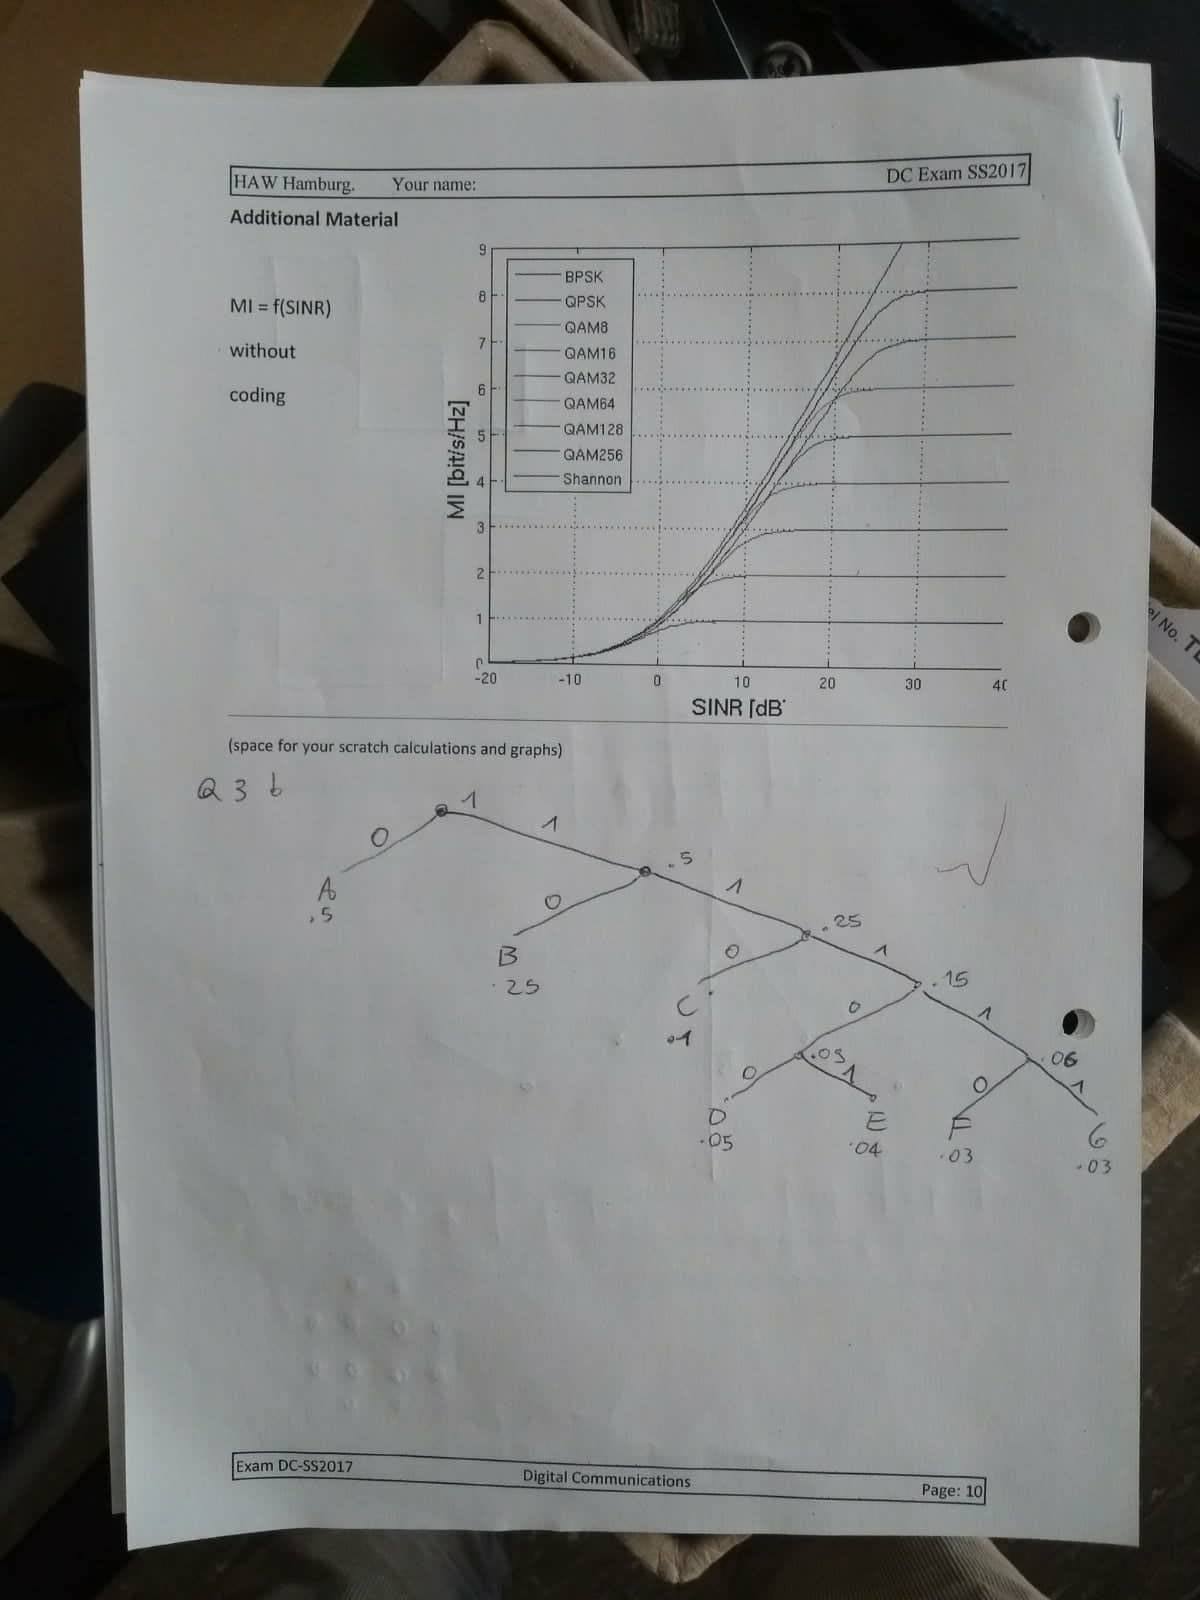 HAW Hamburg. Your name: DC Exam SS2017
Additional Material
MI = f(SINR)
without
coding
MI [bit/s/Hz]
9
8
7
6
5
4
3
2
1
0
BPSK
QPSK
QAM8
QAM16
QAM32
QAM64
QAM128
QAM256
Shannon
-20 -10 0 10 20 30 40
SINR [dB]
(space for your scratch calculations and graphs)
Q 3 b
1
0 1
A .5
.5
0 1
B .25
.25
0 1
C .15
.1
0 1
.09 .06
0 1 0 1
D E F G
.05 .04 .03 .03
Exam DC-SS2017 Digital Communications Page: 10